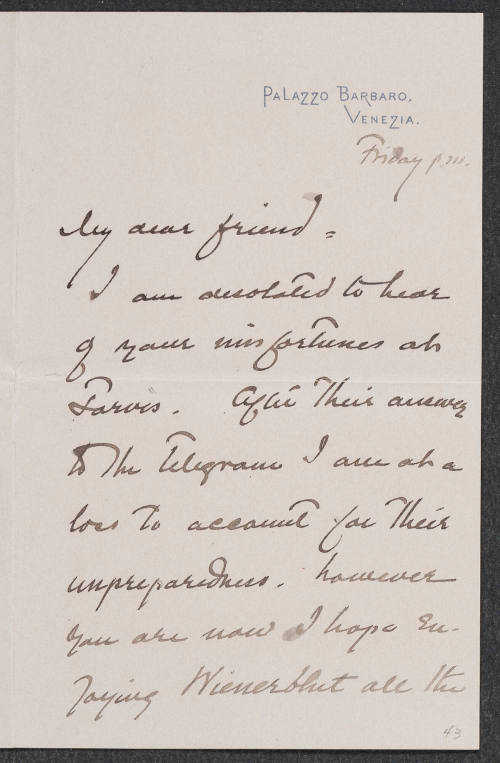 PALAZZO BARBARO,
VENEZIA.
Friday p.m.
My dear friend =
I am desolated to hear
of your misfortunes at
Tarvis. After their answer
to the telegram I am at a
loss to account for their
unpreparedness. however
you are now I hope En-
joying Wienerblut all the
43